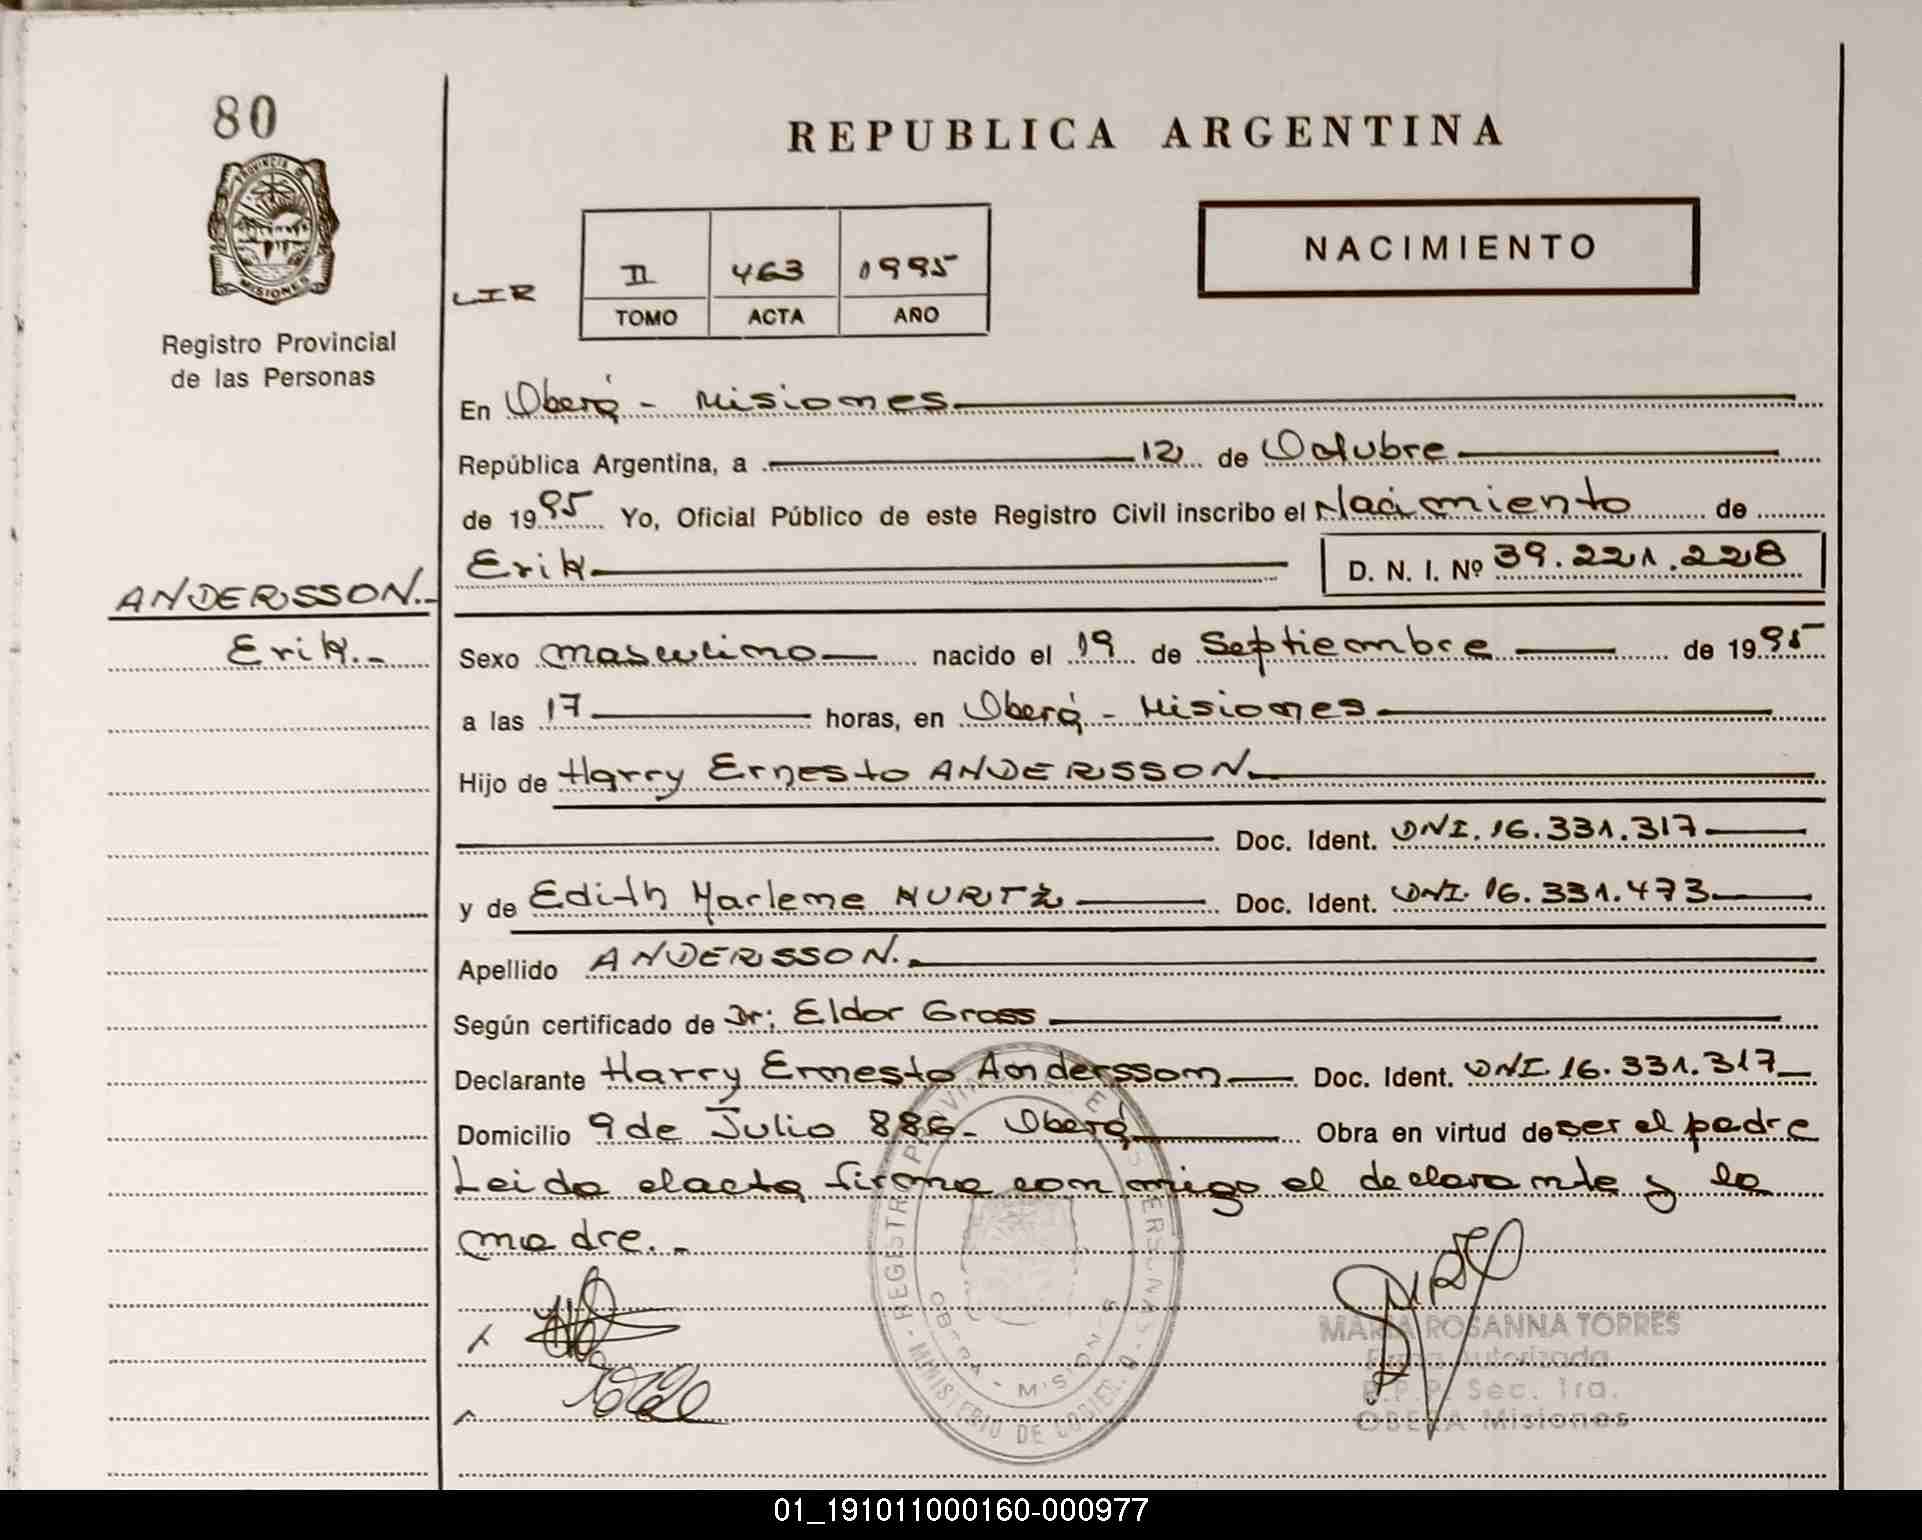 80
REPUBLICA ARGENTINA
PROVINCIA DE
MISIONES
Registro Provincial
de las Personas
LIR
II 463 1995
TOMO ACTA AÑO
NACIMIENTO
En Oberá - Misiones
República Argentina, a 12 de Octubre
de 1995 Yo, Oficial Público de este Registro Civil inscribo el Nacimiento de
Erik D. N. I. Nº 39.221.228
ANDERSSON.-
Erik.-
Sexo masculino nacido el 19 de Septiembre de 1995
a las 17 horas, en Oberá - Misiones
Hijo de Harry Ernesto ANDERSSON
Doc. Ident. DNI. 16.331.317
y de Edith Marlene KURTZ Doc. Ident. DNI. 16.331.473
Apellido ANDERSSON.
Según certificado de Dr: Eldor Gross
Declarante Harry Ernesto Andersson Doc. Ident. DNI. 16.331.317
Domicilio 9 de Julio 886- Oberá Obra en virtud de ser el padre
Leida el acta firma con migo el declarante y la
madre.-
REGISTRO PROVINCIAL DE LAS PERSONAS - MINISTERIO DE GOBIERNO -
OBERA - MISIONES
MARIA ROSANNA TORRES
Firma Autorizada
R.P.P. Sec. 1ra.
OBERA Misiones
01_191011000160-000977